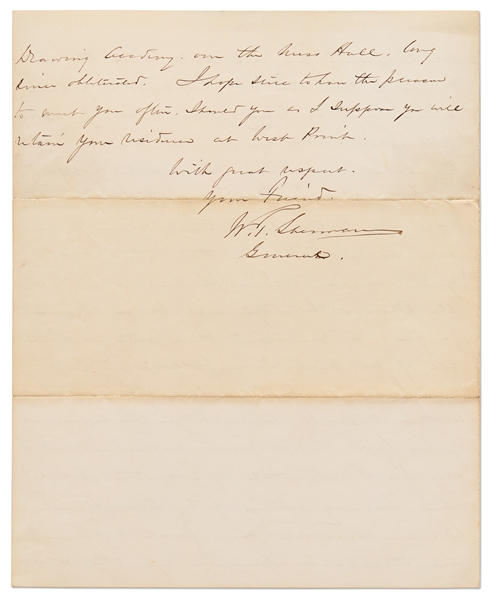 Drawing Academy. over the Mess Hall. long
since obliterated. I hope still to have the pleasure
to meet you often. Should you as I suppose you will
retain your residence at West Point.
With great respect.
Your friend.
W. T. Sherman
General.